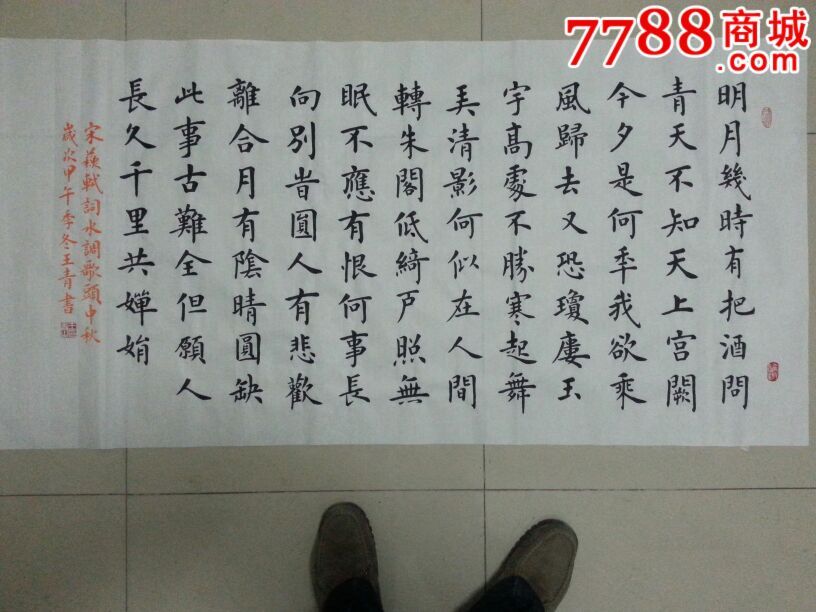 明月幾時有把酒問
青天不知天上宮闕
今夕是何季我欲乘
風歸去又恐瓊廔玉
宇髙處不勝寒起舞
弄清影何似在人間
轉朱閣低綺戶照無
眠不應有恨何事長
向別昔圓人有悲歡
離合月有陰晴圓缺
此事古難全但願人
長久千里共嬋娟
宋蘇軾詞水調歌頭中秋
歲次甲午季冬王青書
7788商城
.com